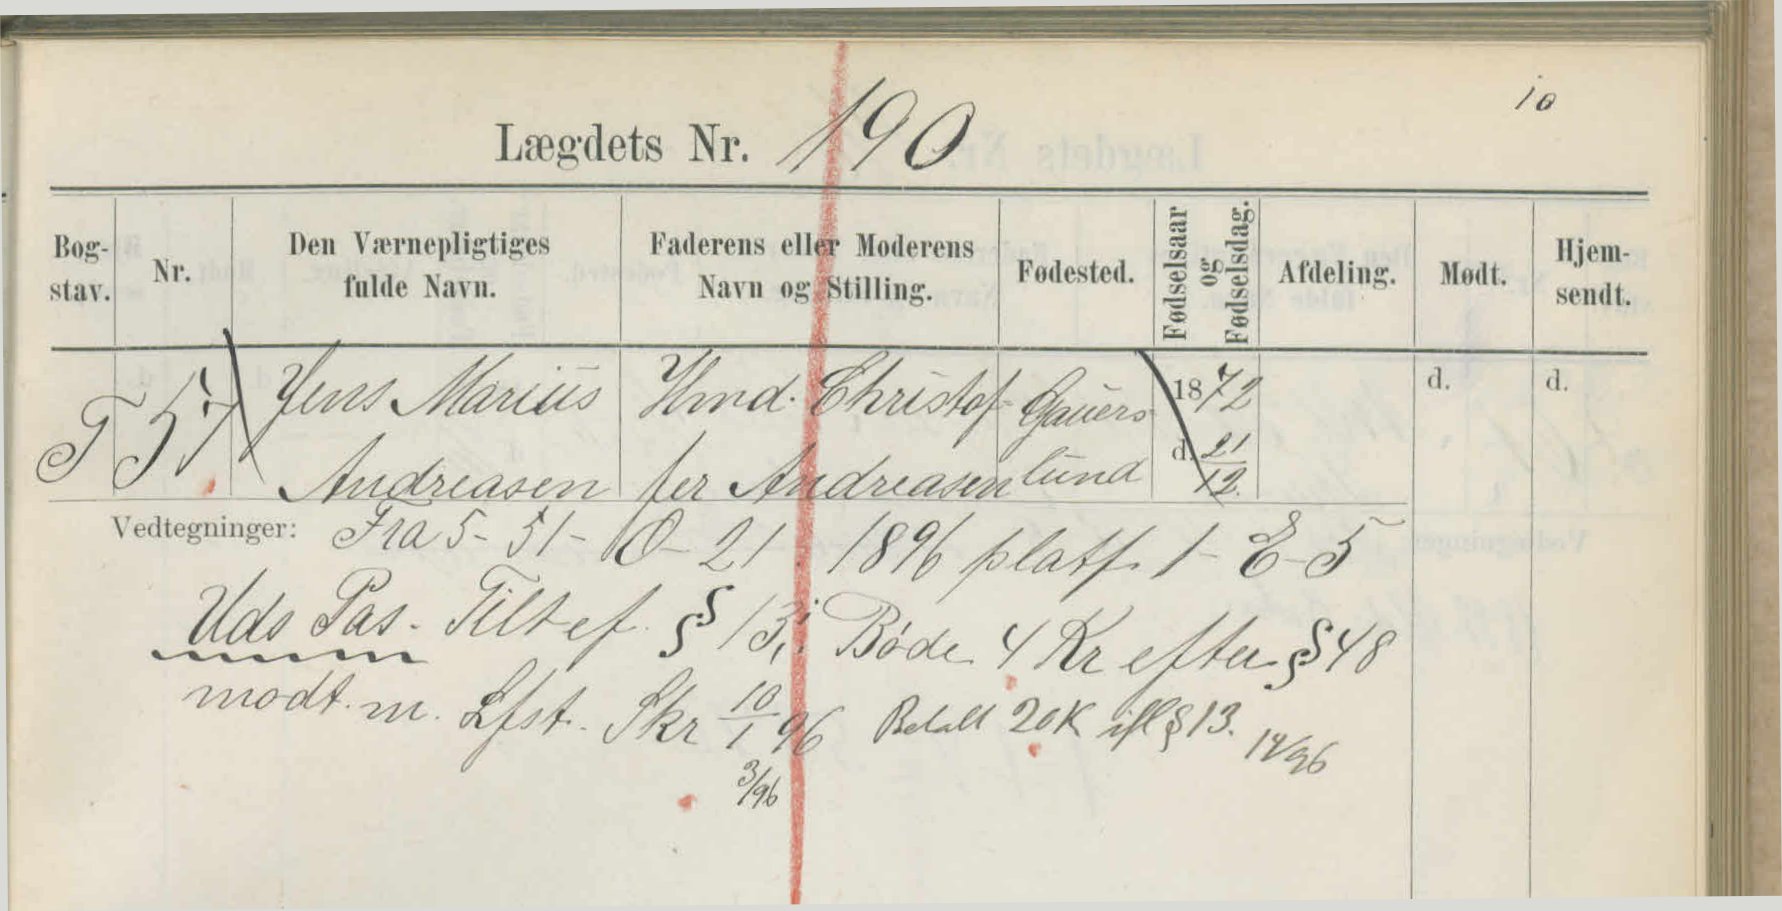 10
Lægdets Nr. 190
Bog-
stav.
Nr.
Den Værnepligtiges
fulde Navn.
Faderens eller Moderens
Navn og Stilling.
Fødested.
Fødselsaar
og
Fødselsdag.
Afdeling.
Mødt.
Hjem-
sendt.
T 57 Jens Marius Hmd. Christof- Gauers- 1872 d. d.
Andreasen fer Andreasen lund d. 21/12.
Vedtegninger: Fra 5-51-O-21. 1896 platf. 1-E-5
Uds Pas. Tilt ef. § 13, Bøde 4 Kr efter § 48
modt. m. Lfst. Skr 10/1 96 Betalt 20 K ifl § 13.
3/96